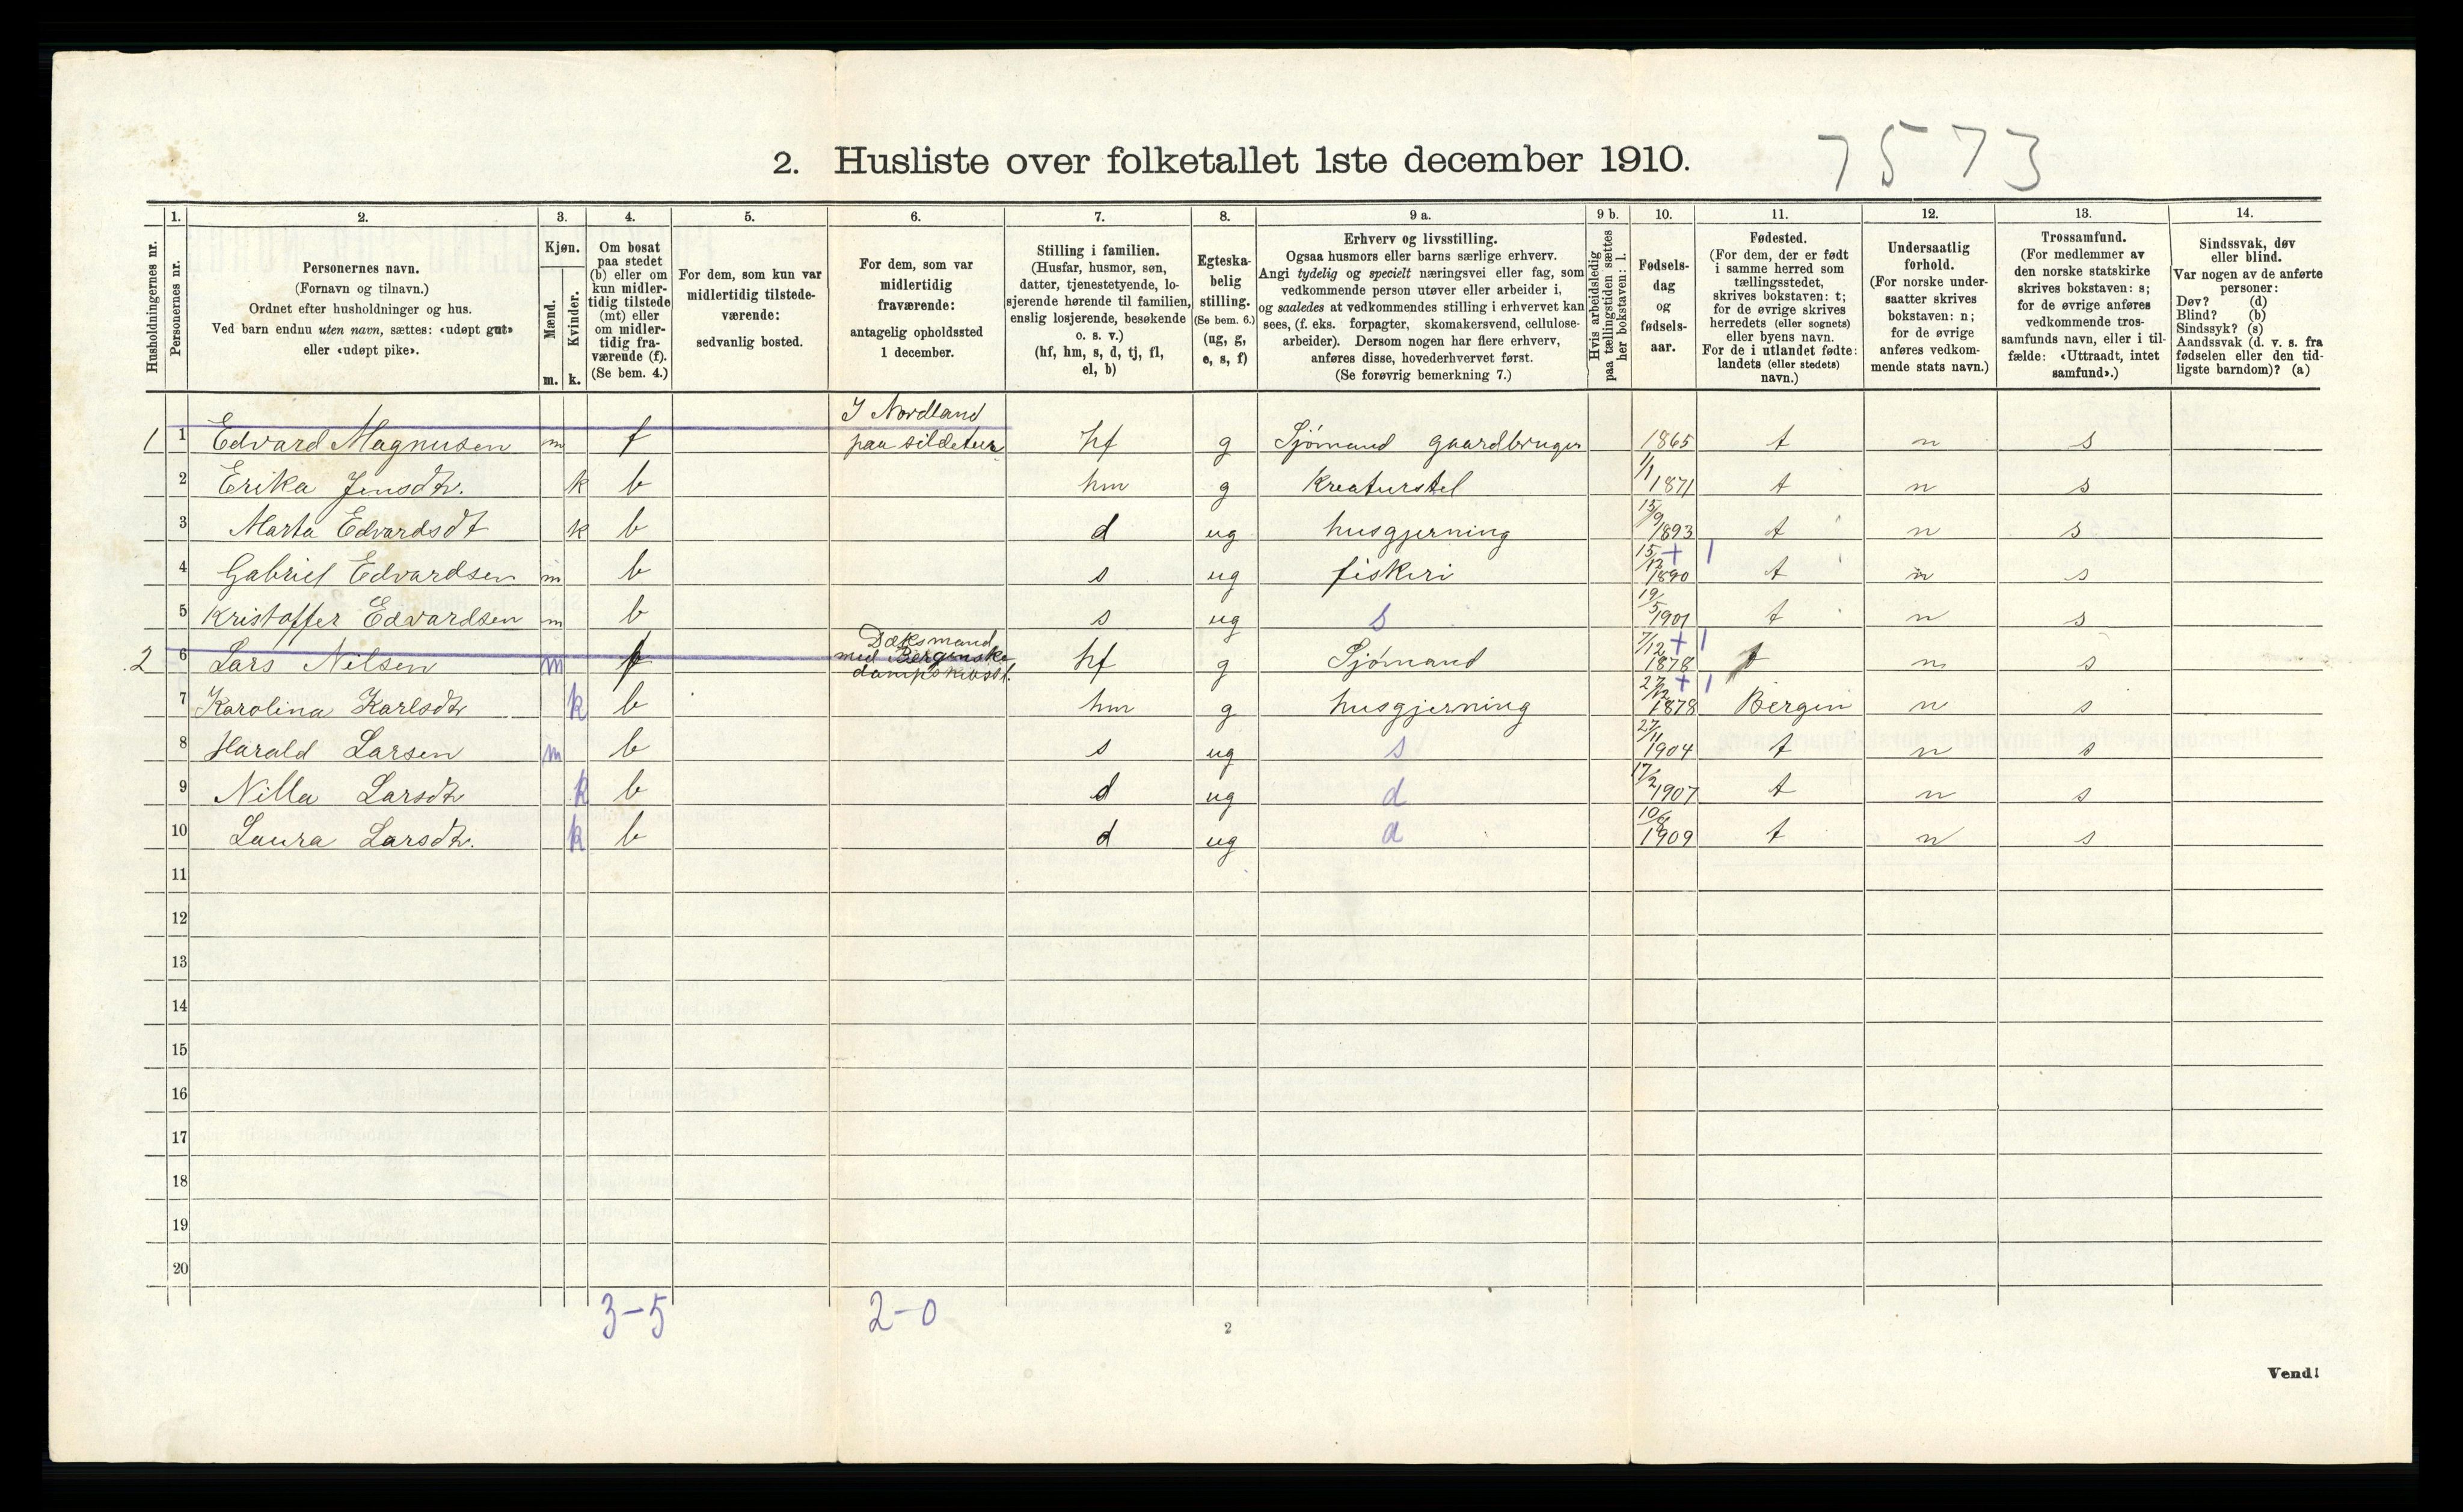 2. Husliste over folketallet 1ste december 1910. 7573
Husholdningernes nr.
1. Personernes nr.
2. Personernes navn.
(Fornavn og tilnavn.)
Ordnet efter husholdninger og hus.
Ved barn endnu uten navn, sættes: «udøpt gut»
eller «udøpt pike».
3. Kjøn.
Mænd. m.
Kvinder. k.
4. Om bosat
paa stedet
(b) eller om
kun midler-
tidig tilstede
(mt) eller
om midler-
tidig fra-
værende (f).
(Se bem. 4.)
5. For dem, som kun var
midlertidig tilstede-
værende:
sedvanlig bosted.
6. For dem, som var
midlertidig
fraværende:
antagelig opholdssted
1 december.
7. Stilling i familien.
(Husfar, husmor, søn,
datter, tjenestetyende, lo-
sjerende hørende til familien,
enslig losjerende, besøkende
o. s. v.)
(hf, hm, s, d, tj, fl,
el, b)
8. Egteska-
belig
stilling.
(Se bem. 6.)
(ug, g,
e, s, f)
9 a. Erhverv og livsstilling.
Ogsaa husmors eller barns særlige erhverv.
Angi tydelig og specielt næringsvei eller fag, som
vedkommende person utøver eller arbeider i,
og saaledes at vedkommendes stilling i erhvervet kan
sees, (f. eks. forpagter, skomakersvend, cellulose-
arbeider). Dersom nogen har flere erhverv,
anføres disse, hovederhvervet først.
(Se forøvrig bemerkning 7.)
9 b. Hvis arbeidsledig
paa tællingstiden sættes
her bokstaven: l.
10. Fødsels-
dag
og
fødsels-
aar.
11. Fødested.
(For dem, der er født
i samme herred som
tællingsstedet,
skrives bokstaven: t;
for de øvrige skrives
herredets (eller sognets)
eller byens navn.
For de i utlandet fødte:
landets (eller stedets)
navn.)
12. Undersaatlig
forhold.
(For norske under-
saatter skrives
bokstaven: n;
for de øvrige
anføres vedkom-
mende stats navn.)
13. Trossamfund.
(For medlemmer av
den norske statskirke
skrives bokstaven: s;
for de øvrige anføres
vedkommende tros-
samfunds navn, eller i til-
fælde: «Uttraadt, intet
samfund».)
14. Sindssvak, døv
eller blind.
Var nogen av de anførte
personer:
Døv? (d)
Blind? (b)
Sindssyk? (s)
Aandssvak (d. v. s. fra
fødselen eller den tid-
ligste barndom)? (a)
I Nordland
1 1 Edvard Magnusen m f paa sildetur hf g Sjömand gaardbruger 1865 t n s
2 Erika Jensdtr. k b hm g Kreaturstel 1/1 1871 t n s
3 Marta Edvardsdt k b d ug husgjerning 15/9 1893 t n s
4 Gabriel Edvardsen m b s ug fiskeri 15/12 1890 + 1 t n s
5 Kristoffer Edvardsen m b s ug s 19/5 1901 t n s
2 6 Lars Nilsen m f Dæksmand
med Bergenske
hf g Sjömand 7/12 1878 + 1 t n s
7 Karolina Karlsdtr k b hm g husgjerning 27/12 1878 + 1 Bergen n s
8 Harald Larsen m b s ug s 27/11 1904 t n s
9 Nilla Larsdtr k b d ug d 17/2 1907 t n s
10 Laura Larsdtr. k b d ug d 1909 t n s
11
12
13
14
15
16
17
18
19
20
3-5 2-0
2
Vend!